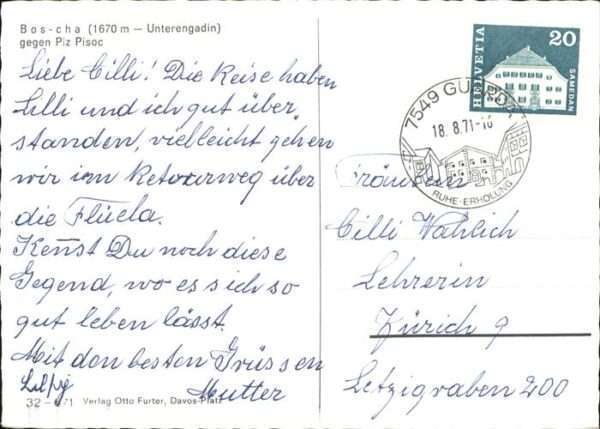 Bos-cha (1670 m — Unterengadin)
gegen Piz Pisoc
Liebe Cilli! Die Reise haben
Lilli und ich gut über
standen, vielleicht gehen
wir im Retourweg über
die Flüela.
Kennst Du noch diese
Gegend, wo es sich so
gut leben lässt.
Mit den besten Grüssen
Mutter
32 – 71 Verlag Otto Furter, Davos-Platz
HELVETIA
20
SAMEDAN
7549 GUARDA
18.8.71-18
RUHE·ERHOLUNG
Fräulein
Cilli Wahlich
Lehrerin
Zürich 9
Letzigraben 200